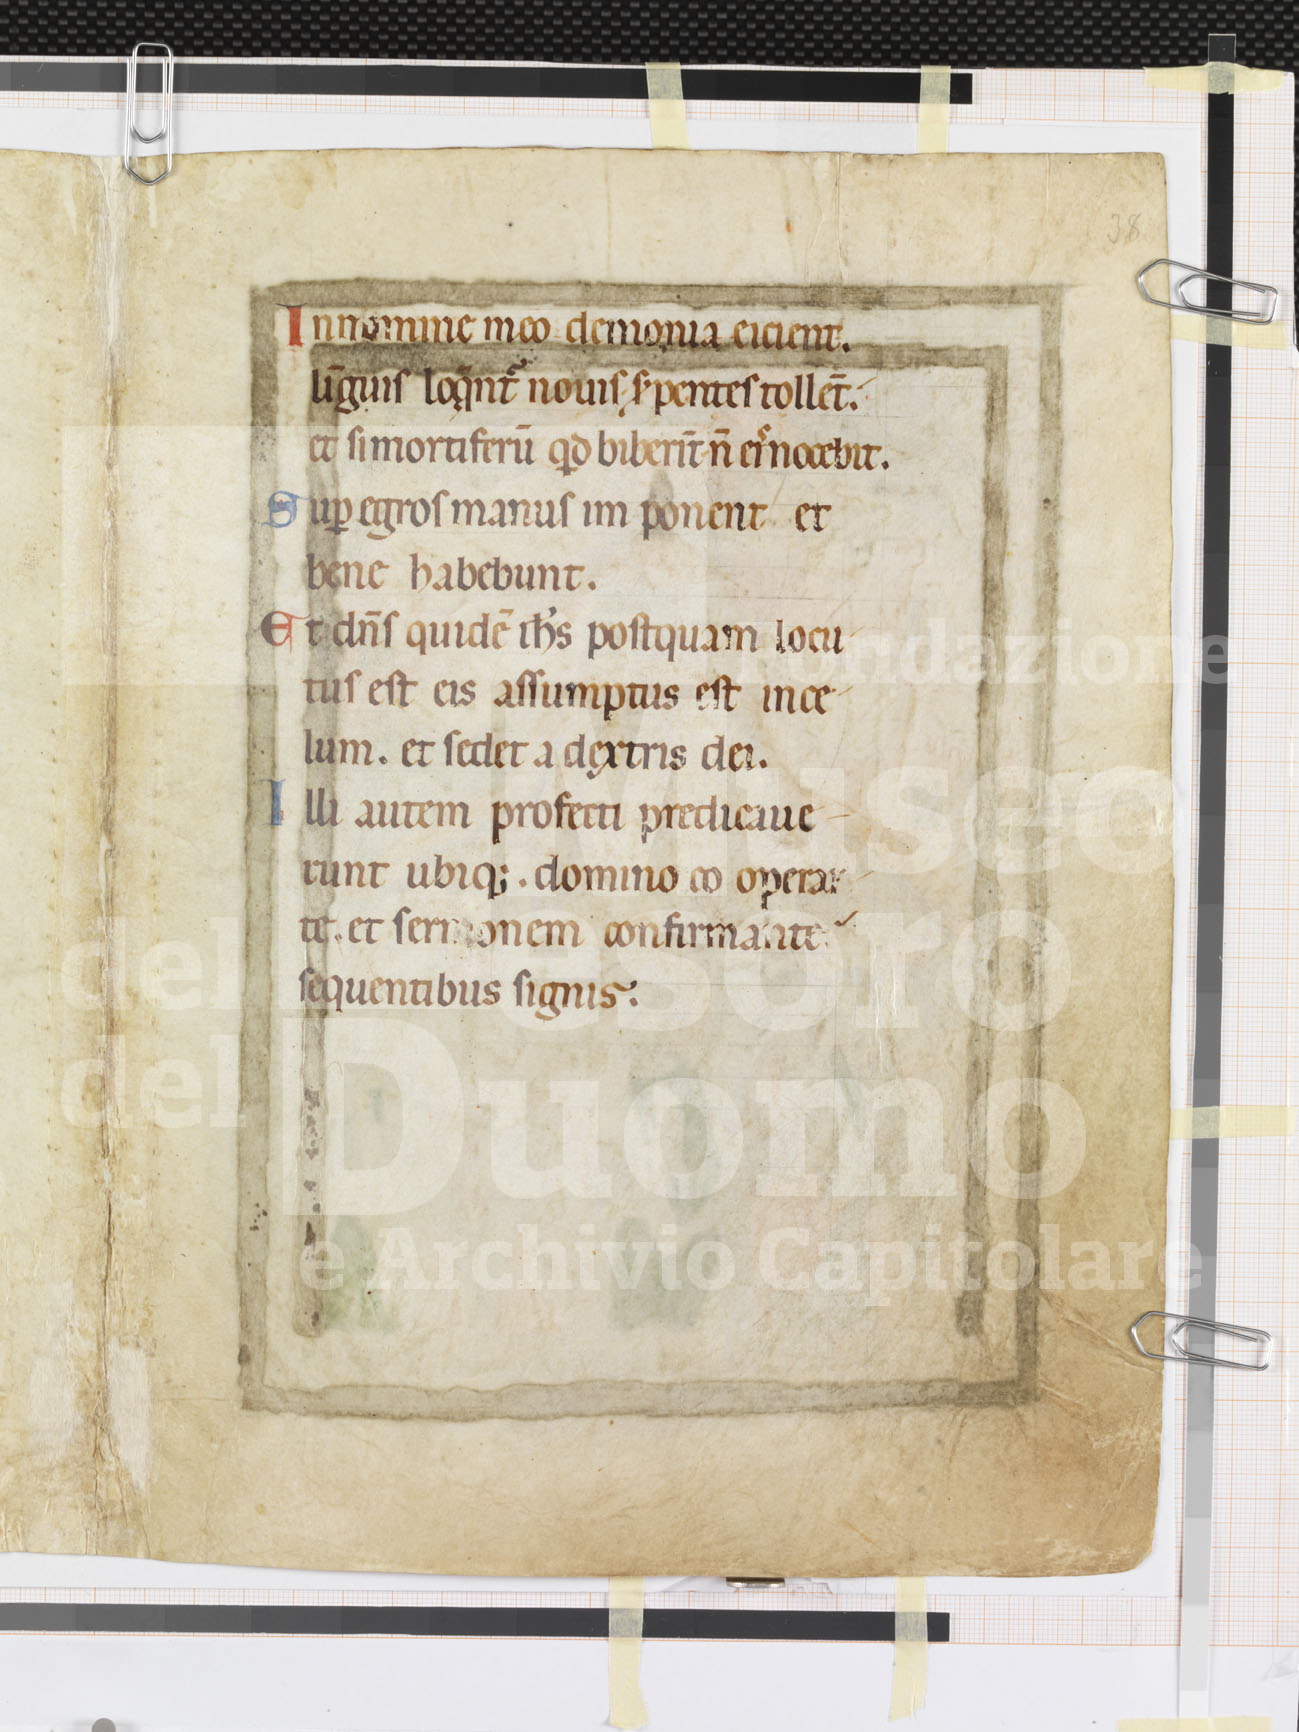 38
In nomine meo demonia eicient.
līguis loq̄nt᷑ nouis, ſ̵pentes tollēt.
et si mortiferū qd biberīt n̄ eiˢ nocebit.
Sup̱ egros manus im ponent et
bene habebunt.
Et dn̄s quidē ih̄s postquam locu
tus est eis assumptus est in ce
lum. et sedet a dextris dei.
Illi autem profecti predicaue
runt ubiq;. domino co operan
te. et sermonem confirmante
sequentibus signis.
Fondazione
Museo
del Tesoro
del Duomo
e Archivio Capitolare